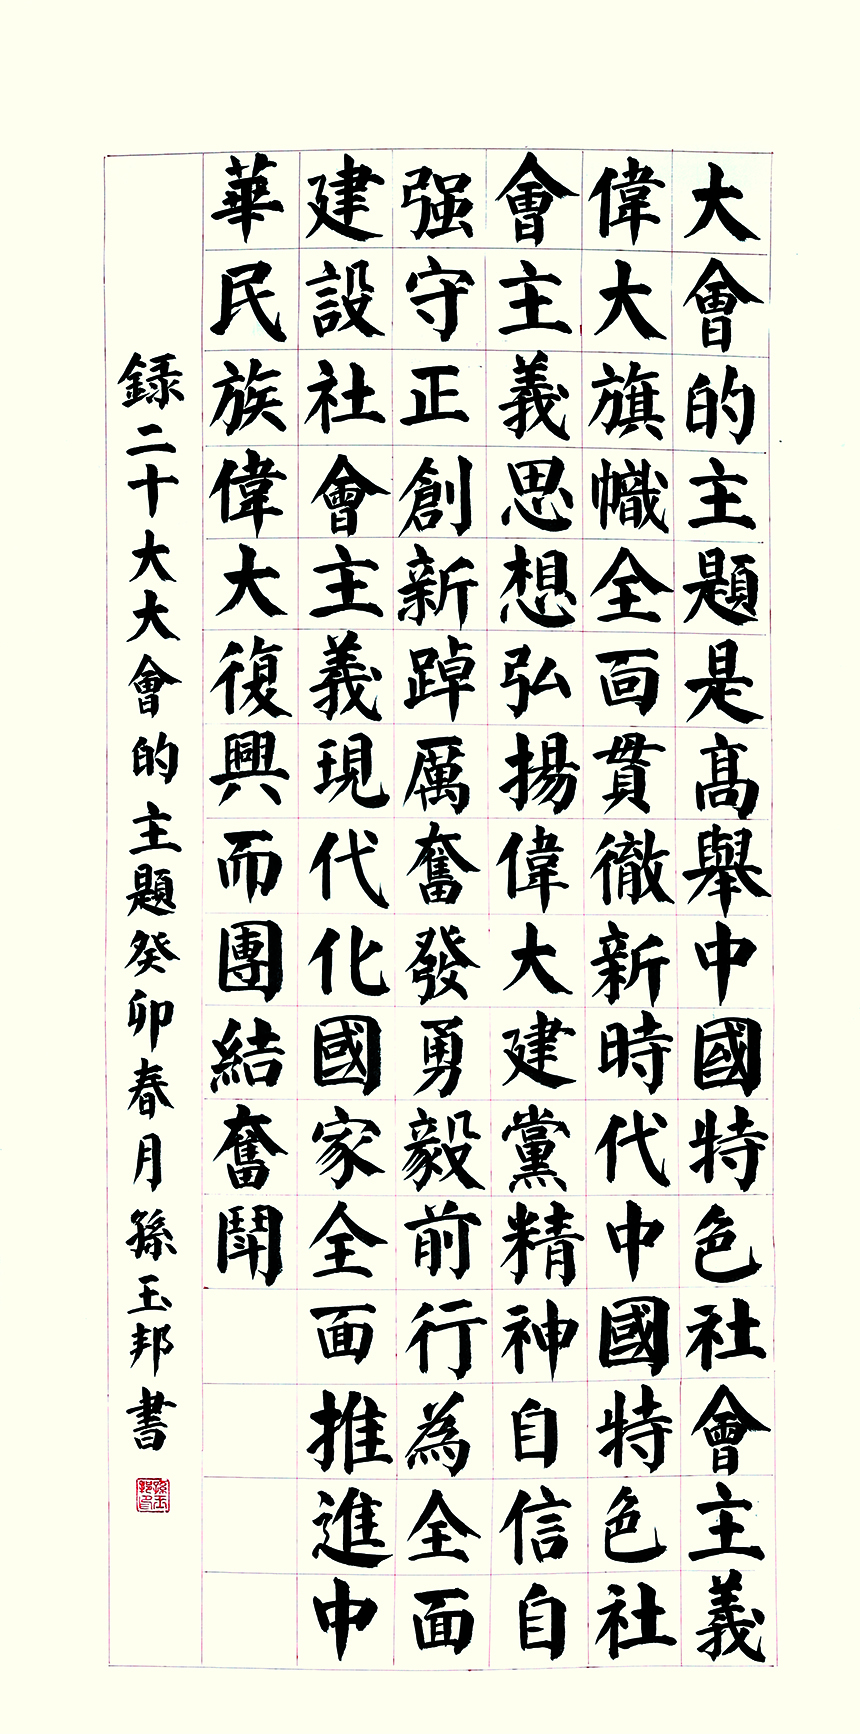 大會的主題是高舉中國特色社會主義
偉大旗幟全面貫徹新時代中國特色社
會主義思想弘揚偉大建黨精神自信自
强守正創新踔厲奮發勇毅前行為全面
建設社會主義現代化國家全面推進中
華民族偉大復興而團結奮鬪
録二十大大會的主題癸卯春月孫玉邦書